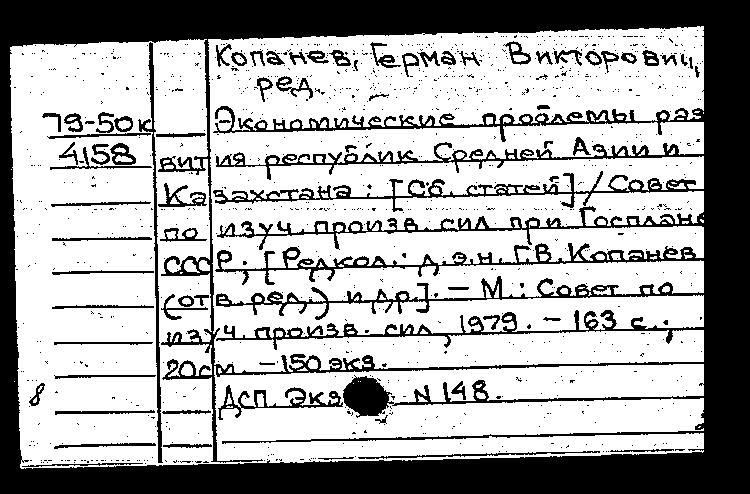 Копанев, Герман Викторович,
ред.
79-50к Экономические проблемы раз
4158 вития республик Средней Азии и
Казахстана : [Сб. статей] / Совет
по изуч. произв. сил при Госплане
СССР ; [Редкол.: д.э.н. Г.В. Копанев
(отв. ред.) и др.]. — М.: Совет по
изуч. произв. сил, 1979. — 163 с. ;
20см. — 150 экз.
8 Дсп. Экз N 148.